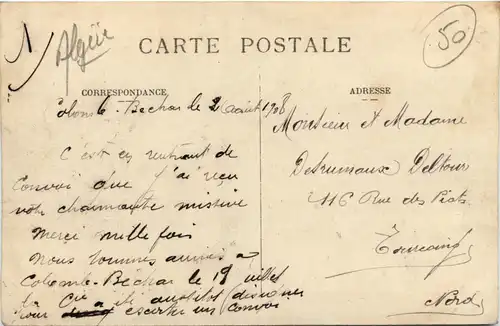 Algérie
50
CARTE POSTALE
CORRESPONDANCE
ADRESSE
Colomb-Bechar le 2 août 1908
C'est en rentrant de
convoi que j'ai reçu
votre charmante missive
Merci mille fois
Nous sommes arrivés a
Colomb-Béchar le 19 juillet
la Cie a été aussitôt désignée
pour escorter un convoi
Monsieur et Madame
Destrumaux Deltour
116 Rue des Piats
Tourcoing
Nord